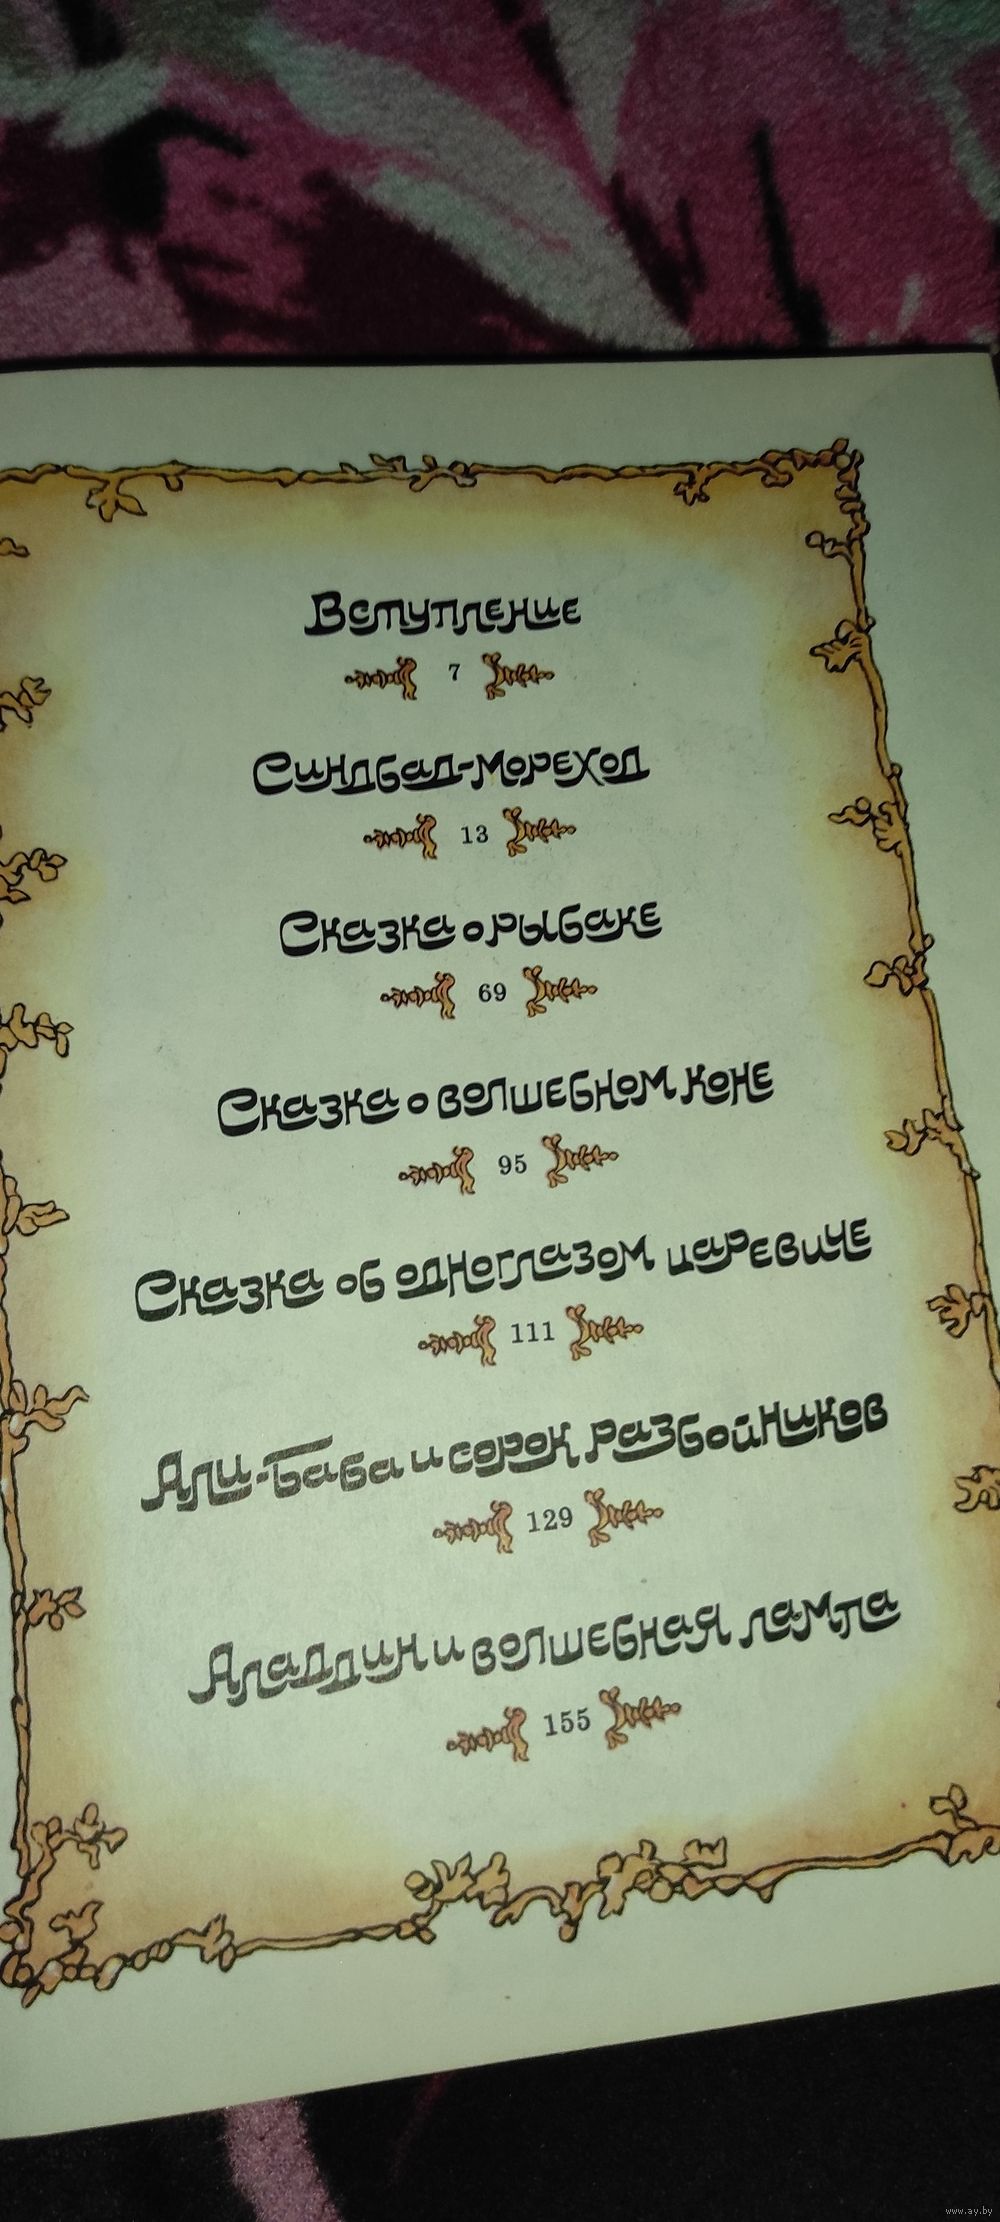 Вступление
7
Синдбад-мореход
13
Сказка о рыбаке
69
Сказка о волшебном коне
95
Сказка об одноглазом царевиче
111
Али-Баба и сорок разбойников
129
Аладдин и волшебная лампа
155
www.ay.by